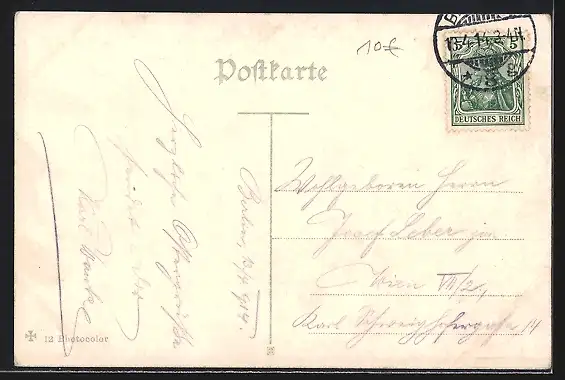 10€
13.4.14.3-4N.
5 5
DEUTSCHES REICH
Postkarte
Herzliche Ostergrüße
sendet
Karl
Berlin, 13/4 914.
Wohlgeboren Herrn
Josef Leber jun.
Wien VII/2,
Karl Schweighofergasse 14
12 Photocolor